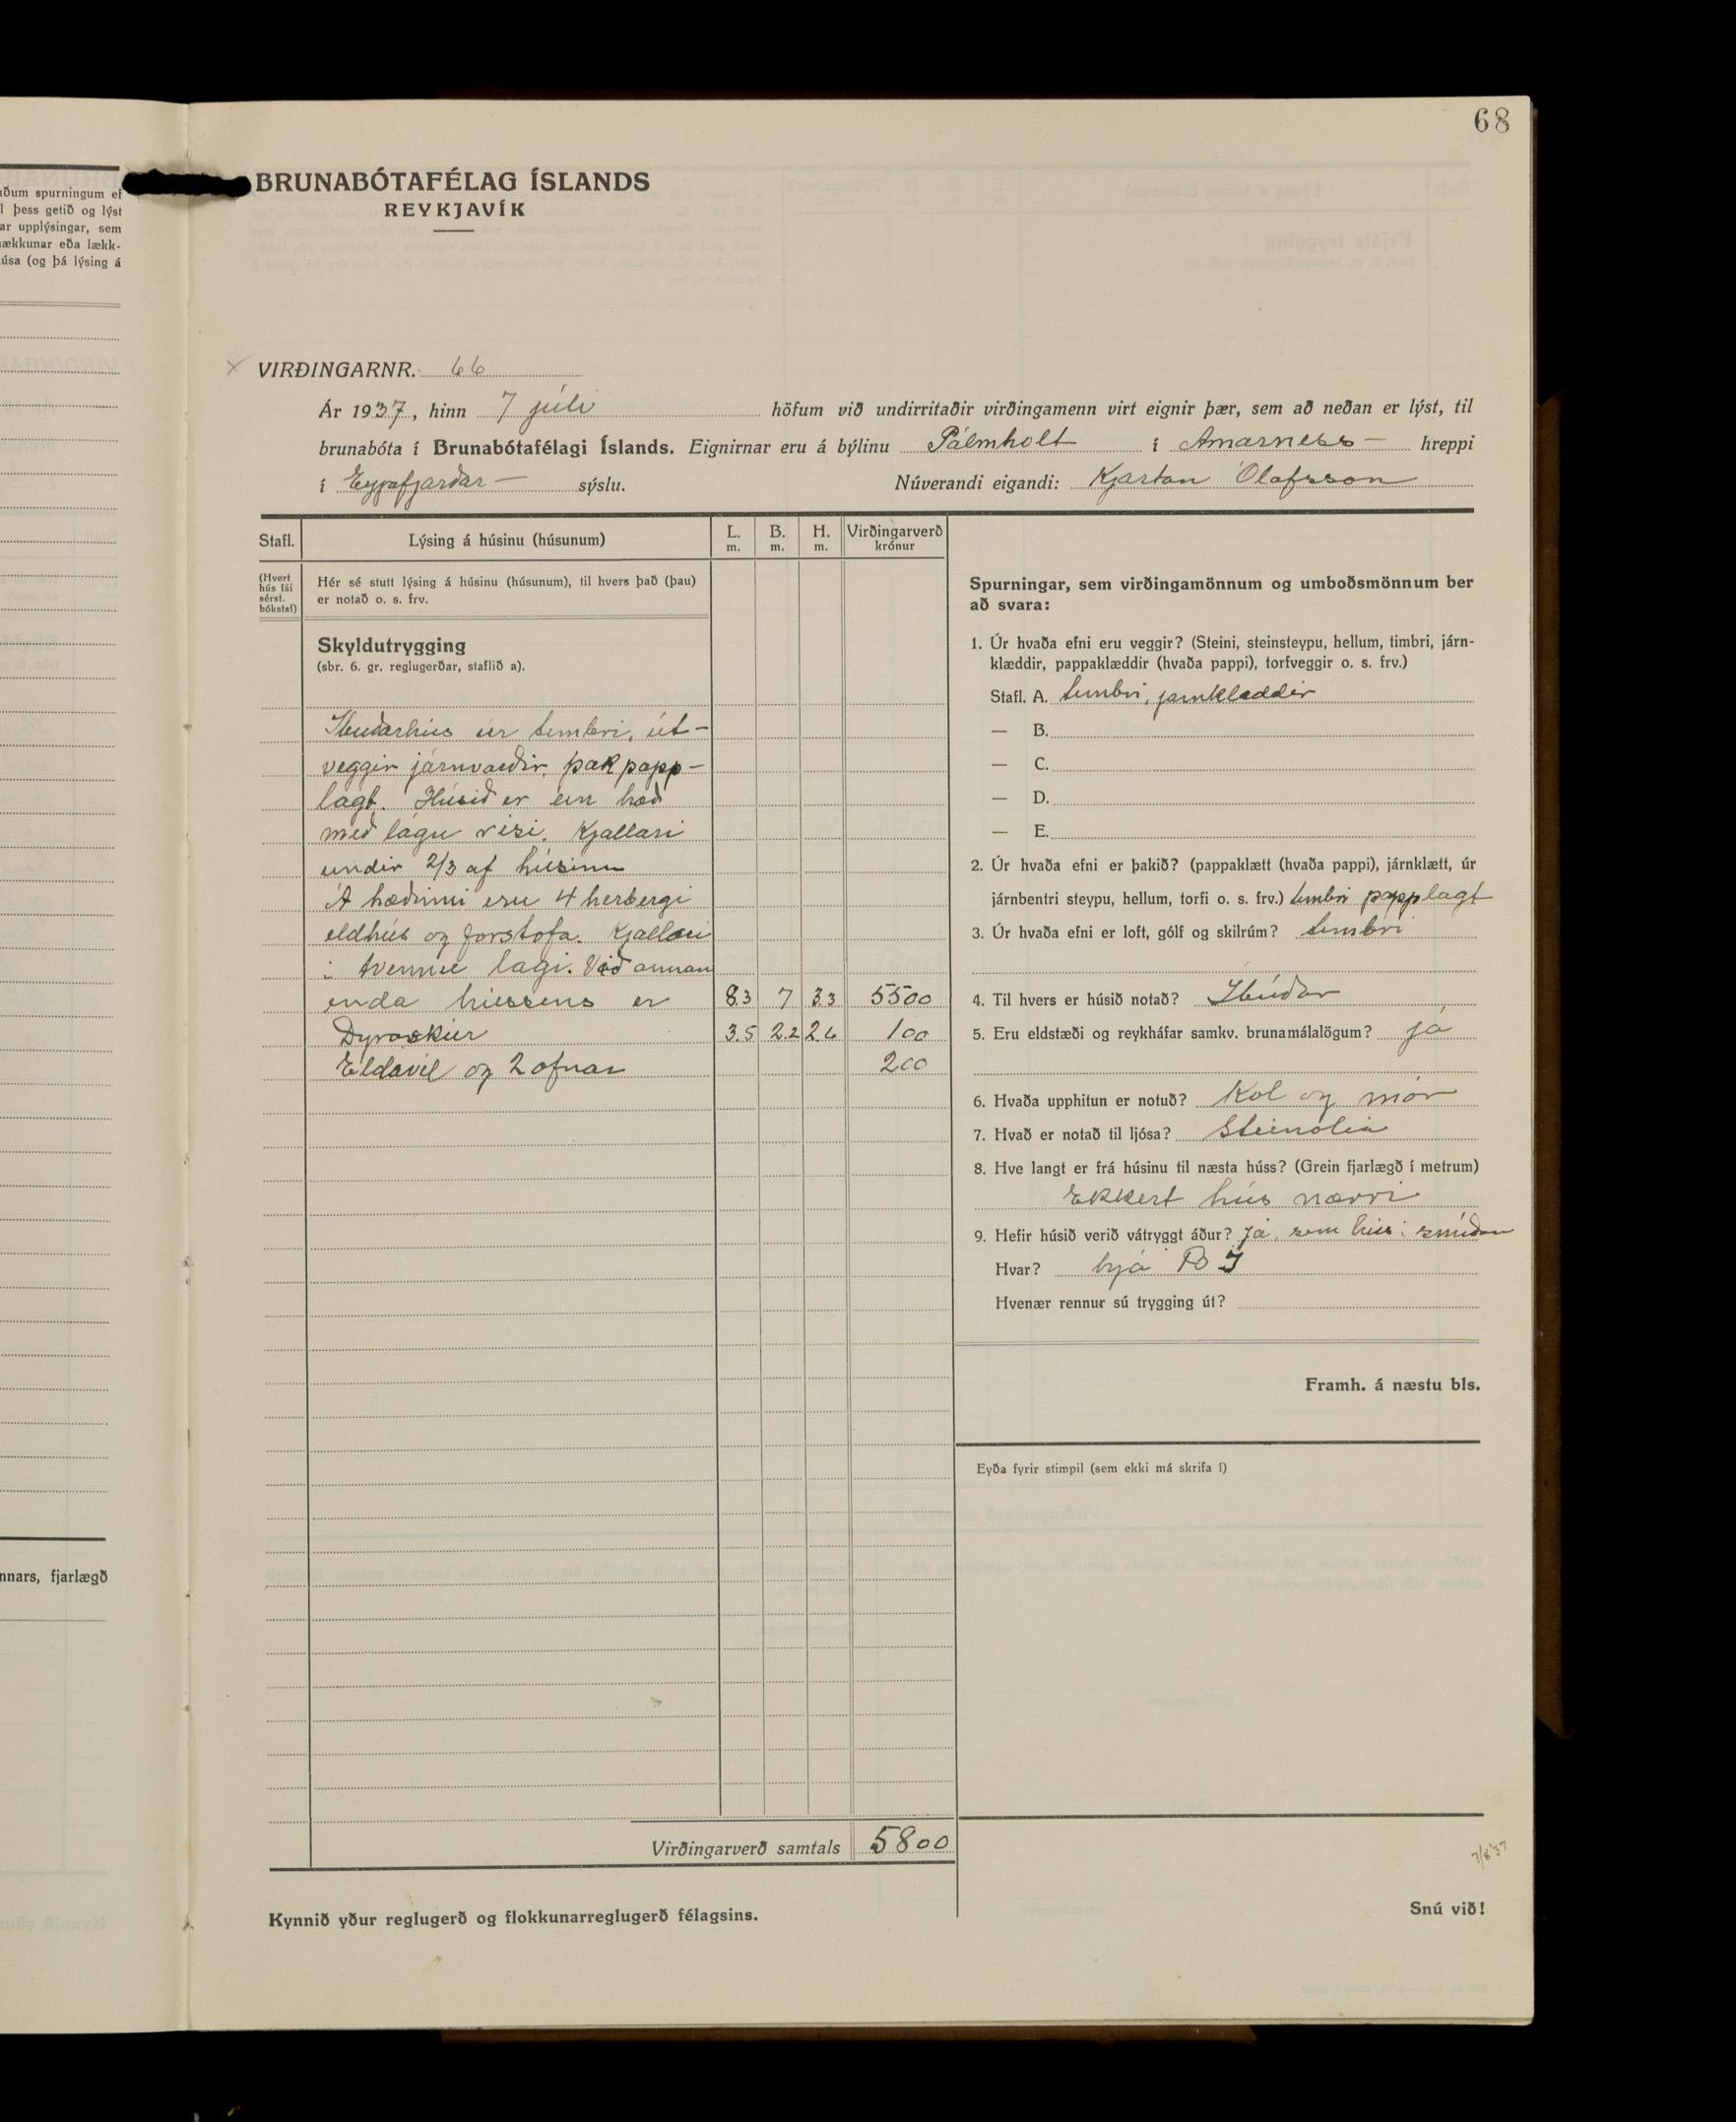 68
ðum spurningum ef
l þess getið og lýst
ar upplýsingar, sem
ækkunar eða lækk-
úsa (og þá lýsing á
nnars, fjarlægð
BRUNABÓTAFÉLAG ÍSLANDS
REYKJAVÍK
x VIRÐINGARNR. 66
Ár 1937, hinn 7 júlí höfum við undirritaðir virðingamenn virt eignir þær, sem að neðan er lýst, til
brunabóta í Brunabótafélagi Íslands. Eignirnar eru á býlinu Pálmholt í Arnarness- hreppi
í Eyjafjarðar- sýslu. Núverandi eigandi: Kjartan Ólafsson
Stafl. Lýsing á húsinu (húsunum) L. m. B. m. H. m. Virðingarverð krónur
(Hvert hús fái sérst. bókstaf)
Hér sé stutt lýsing á húsinu (húsunum), til hvers það (þau)
er notað o. s. frv.
Skyldutrygging
(sbr. 6. gr. reglugerðar, staflið a).
Íbúðarhús úr timbri, út-
veggir járnvarðir, þak papp-
lagt. Húsið er ein hæð
með lágu risi. Kjallari
undir 2/3 af húsinu
Á hæðinni eru 4 herbergi
eldhús og forstofa. Kjallari
í tvennu lagi. Við annan
enda hússens er 8.3 7 3.3 5500
Dyraskúr 3.5 2.2 2.6 100
Eldavél og 2 ofnar 200
Virðingarverð samtals 5800
Kynnið yður reglugerð og flokkunarreglugerð félagsins.
Spurningar, sem virðingamönnum og umboðsmönnum ber
að svara:
1. Úr hvaða efni eru veggir? (Steini, steinsteypu, hellum, timbri, járn-
klæddir, pappaklæddir (hvaða pappi), torfveggir o. s. frv.)
Stafl. A. timbri, járnklæddir
— B.
— C.
— D.
— E.
2. Úr hvaða efni er þakið? (pappaklætt (hvaða pappi), járnklætt, úr
járnbentri steypu, hellum, torfi o. s. frv.) timbri papplagt
3. Úr hvaða efni er loft, gólf og skilrúm? timbri
4. Til hvers er húsið notað? Íbúðar
5. Eru eldstæði og reykháfar samkv. brunamálalögum? já
6. Hvaða upphitun er notuð? Kol og mór
7. Hvað er notað til ljósa? Steinolía
8. Hve langt er frá húsinu til næsta húss? (Grein fjarlægð í metrum)
Ekkert hús nærri
9. Hefir húsið verið vátryggt áður? já, sem hús í smíðum
Hvar? hjá B Í
Hvenær rennur sú trygging út?
Framh. á næstu bls.
Eyða fyrir stimpil (sem ekki má skrifa í)
7/8 '37
Snú við!